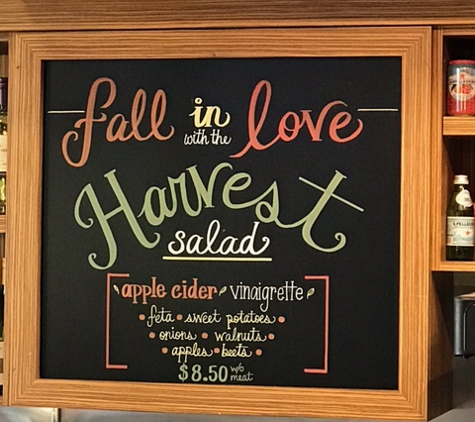 fall in love
with the
Harvest
salad
apple cider vinaigrette
• feta • sweet potatoes •
• onions • walnuts •
• apples • beets •
$8.50 w/o
meat
S.PELLEGRINO